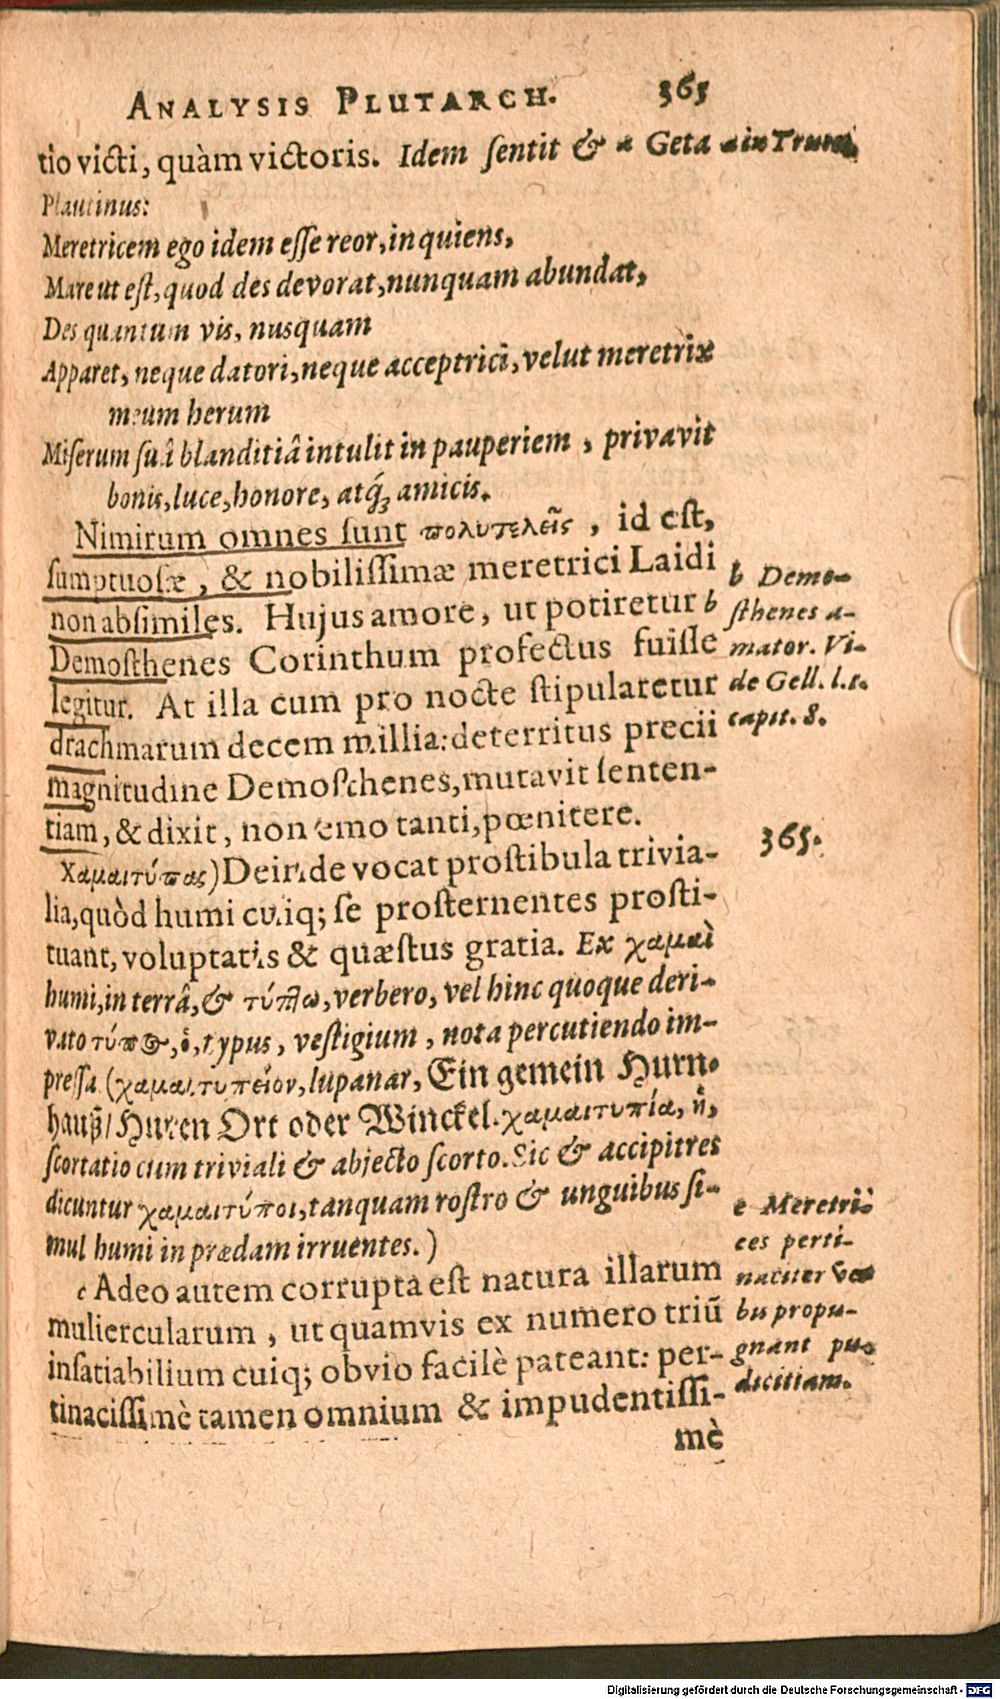 ANALYSIS PLUTARCH. 365
tio victi, quàm victoris. Idem sentit & a Geta
a in Truc.
Plautinus:
Meretricem ego idem esse reor, inquiens,
Mare ut est, quod des devorat, nunquam abundat,
Des quantum vis, nusquam
Apparet, neque datori, neque acceptrici, velut meretrix
meum herum
Miserum suâ blanditiâ intulit in pauperiem, privavit
bonis, luce, honore, atq́; amicis.
Nimirum omnes sunt πολυτελεῖς, id est,
sumptuosæ, & nobilissimæ meretrici Laidi
non absimiles. Hujus amore, ut potiretur b
Demosthenes Corinthum profectus fuisse
legitur. At illa cum pro nocte stipularetur
drachmarum decem millia: deterritus precii
magnitudine Demosthenes, mutavit senten-
tiam, & dixit, non emo tanti, pœnitere.
b Demo-
sthenes a-
mator. Vi-
de Gell. l. 1.
capit. 8.
365.
Χαμαιτύπας) Deinde vocat prostibula trivia-
lia, quòd humi cuiq; se prosternentes prosti-
tuant, voluptatis & quæstus gratia. Ex χαμαὶ
humi, in terrâ, & τύπτω, verbero, vel hinc quoque deri-
vato τύπος, ὁ, typus, vestigium, nota percutiendo im-
pressa (χαμαιτυπεῖον, lupanar, Ein gemein Hurn-
hauß/ Huren Ort oder Winckel. χαμαιτυπία, ἡ,
scortatio cum triviali & abjecto scorto. Sic & accipitres
dicuntur χαμαιτύποι, tanquam rostro & unguibus si-
mul humi in prædam irruentes.)
c Adeo autem corrupta est natura illarum
muliercularum, ut quamvis ex numero triũ
insatiabilium cuiq; obvio facilè pateant: per-
tinacissimè tamen omnium & impudentissi-
mè
c Meretri-
ces perti-
naciter ver
bu propu-
gnant pu-
dicitiam.
Digitalisierung gefördert durch die Deutsche Forschungsgemeinschaft - DFG